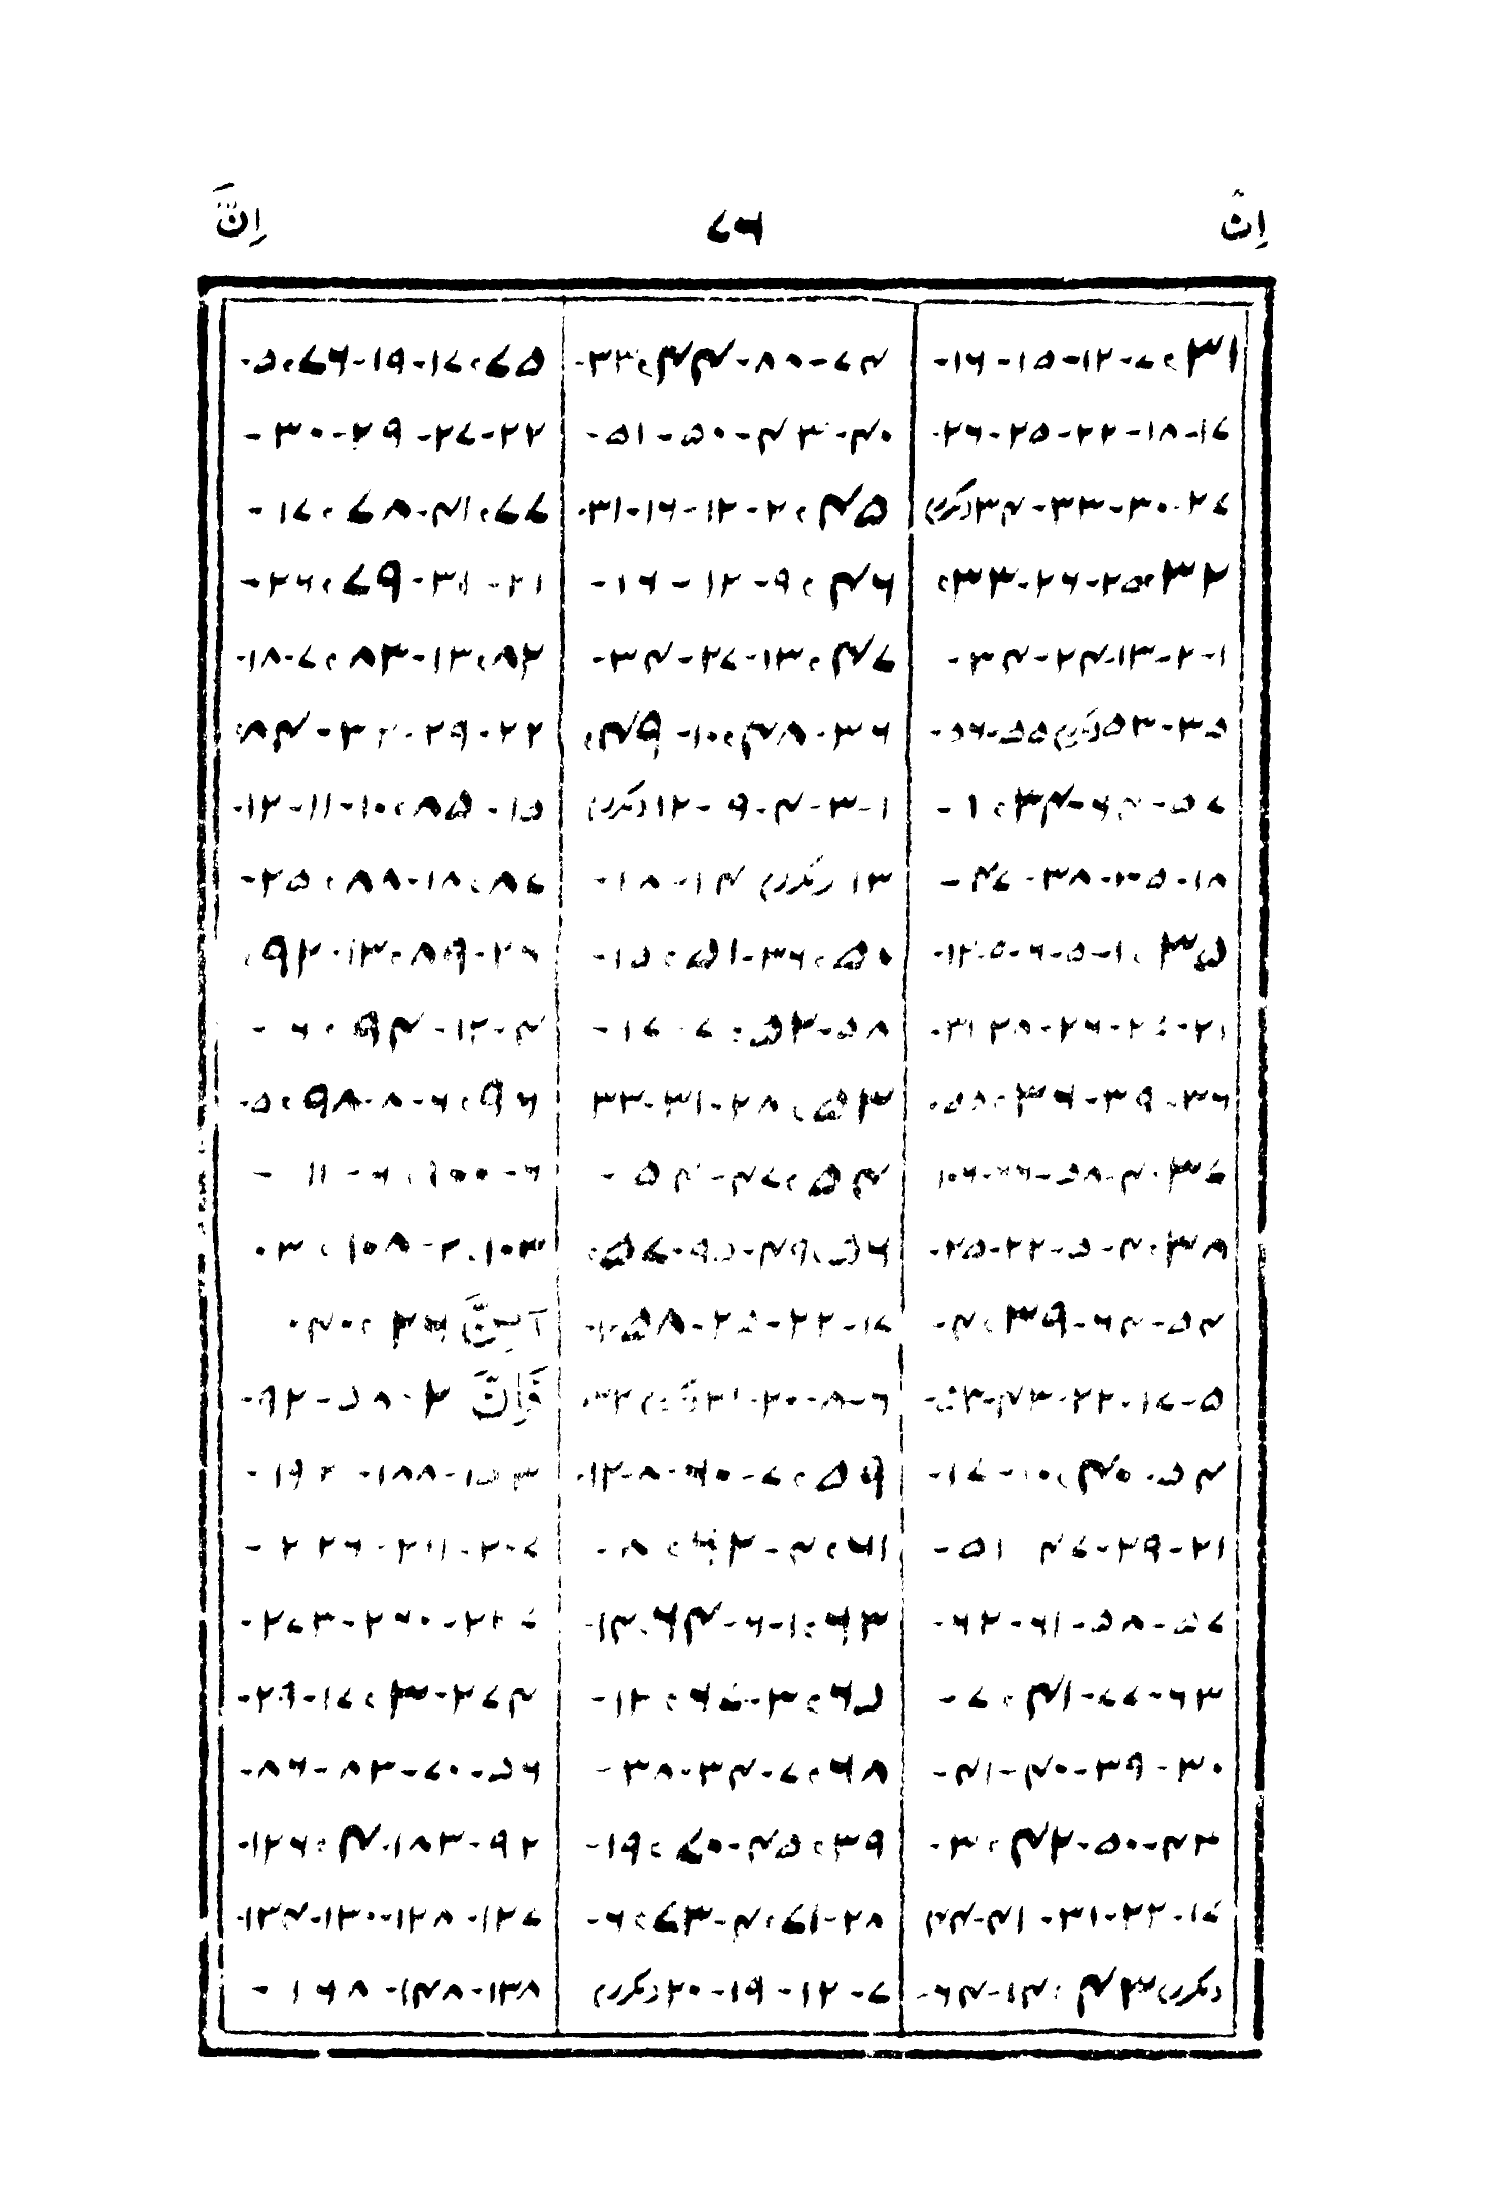 اِنَّ ۷۶ اِنَّ
۳۱؛۷-۱۲-۱۵-۱۶-
۱۷-۱۸-۲۲-۲۵-۲۶-
۲۷-۳۰-۳۳-۳۴(مکرر)
۳۲؛۲۵-۲۶-۳۳؛
۱-۲-۱۳-۲۴-۳۴-
۳۵-۵۳(مکرر)۵۵-۵۶-
۵۷-۶۴-۳۴؛۱-
۱۸-۳۵-۳۸-۴۷-
۳۵؛۱-۵-۶-۱۲-
۲۱-۲۷-۲۶-۲۸-۳۱-
۳۶-۳۹-۳۶؛۵۵-
۳۷؛۴-۵۸-۶۶-۱۰۶
۳۸؛۴-۵-۲۲-۲۵-
۵۴-۶۴-۳۹؛۴-
۵-۱۷-۲۲-۴۳-۵۳-
۵۴-۴۰؛۱۰-۱۷-
۲۱-۲۹-۴۷-۵۱-
۵۷-۵۸-۶۱-۶۲-
۶۳-۷۷-۴۱؛۷-
۳۰-۳۹-۴۰-۴۱-
۴۳-۵۰-۴۲؛۳-
۱۷-۲۲-۳۱-۴۱-۴۴
(مکرر)۴۳؛۱۴-۴۶-
۷۴-۸۰-۴۴؛۳۳-
۴۰-۴۳-۵۰-۵۱-
۴۵؛۲-۱۲-۱۶-۳۱-
۴۶؛۹-۱۲-۱۶-
۴۷؛۱۳-۲۷-۳۴-
۳۶-۴۸؛۱۰-۴۹؛
۱-۳-۴-۹-۱۲(مکرر)
۱۳(مکرر)۱۴-۱۸-
۵۰؛۳۶-۵۱؛۱۵-
۵۸-۵۲؛۷-۱۷-
۵۳؛۲۸-۳۱-۳۲
۵۴؛۴۷-۵۴-
۵۶؛۴۹-۹۵-۵۷؛
۱۷-۲۲-۲۵-۵۸؛۱-
۶-۸-۲۰-۲۱(مکرر)۲۲
۵۹؛۷-۶۰؛۸-۱۲-
۶۱؛۴-۶۲؛۸-
۶۳؛۱-۶-۶۴؛۱۴-
۶۵؛۳-۶۷؛۱۲-
۶۸؛۷-۳۴-۳۸-
۳۹؛۴۵-۷۰؛۱۹-
۲۸-۷۱؛۴-۷۳؛۶-
۷-۱۲-۱۹-۲۰(مکرر)
۷۵؛۱۷-۱۹-۷۶؛۵-
۲۲-۲۷-۲۹-۳۰-
۷۷؛۴۱-۷۸؛۱۷-
۲۱-۳۱-۷۹؛۲۶-
۸۲؛۱۳-۸۳؛۷-۱۸-
۲۲-۲۹-۳۲-۸۴؛
۱۵-۸۵؛۱۰-۱۱-۱۲-
۸۷؛۱۸-۸۹؛۲۵-
۲۶-۸۹؛۱۳-۹۲؛
۴-۱۲-۹۴؛۶-
۹۶؛۶-۸-۹۸؛۵-
۶-۱۰۰؛۶-۱۱-
۱۰۳؛۲-۱۰۸؛۳-
۴۰-
فَاِنَّ ۲-۹۲-
۱۸۸-۱۹۲-
۲۰۷-۲۱۱-۲۲۶-
۲۲۷-۲۶۰-۲۷۳-
۲۷۴-۳؛۱۷-۲۹-
۵۶-۷۰-۸۳-۸۶-
۹۲-۱۸۳-۴؛۱۲۶-
۱۲۷-۱۲۸-۱۳۰-۱۳۴-
۱۳۸-۱۴۸-۱۶۸-